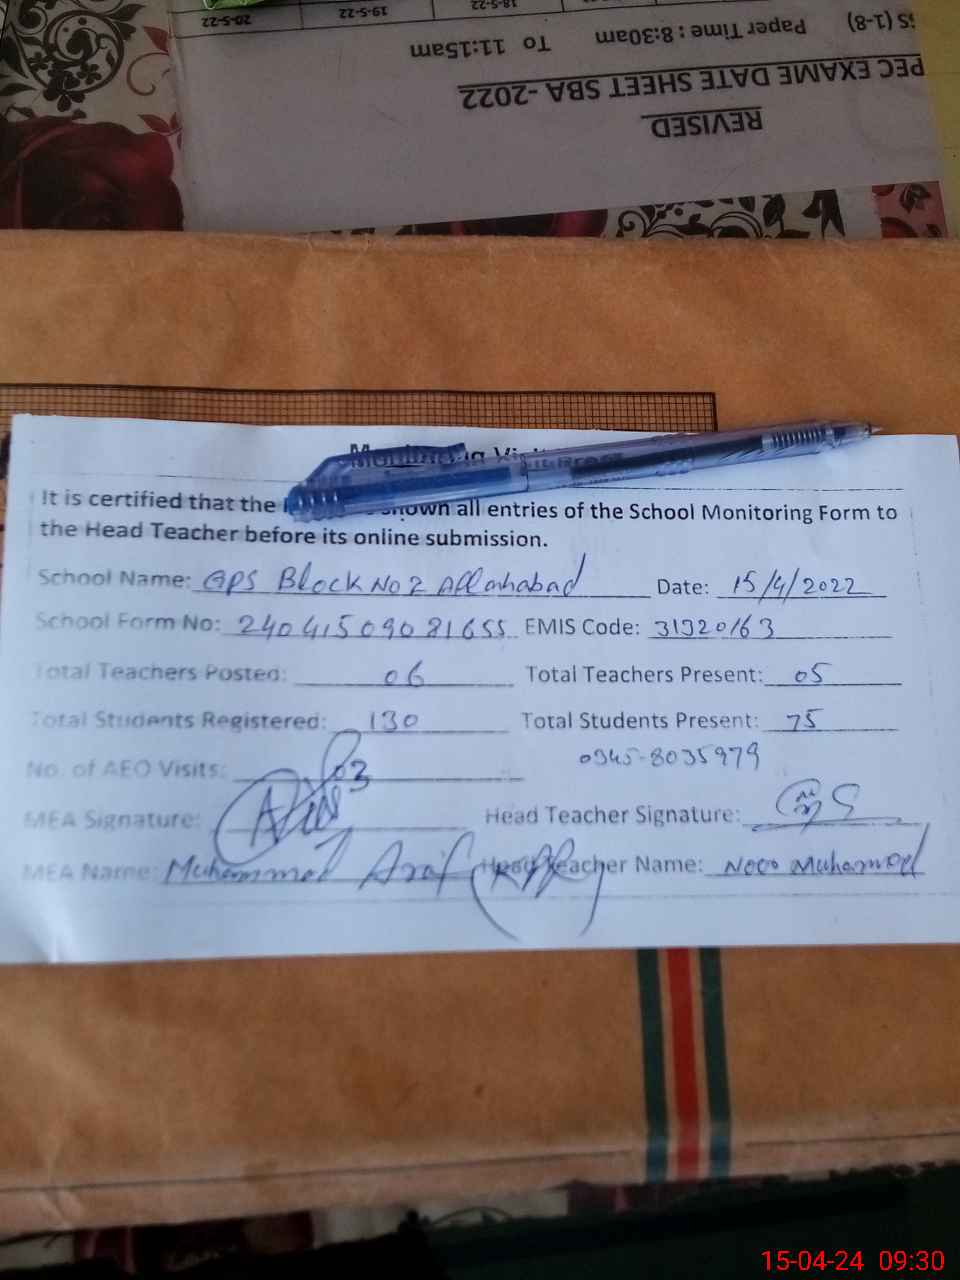 REVISED
PEC EXAME DATE SHEET SBA -2022
(1-8) Paper Time : 8:30am To 11:15am
18-5-22 19-5-22 20-5-22
It is certified that the shown all entries of the School Monitoring Form to
the Head Teacher before its online submission.
School Name: GPS Block No 2 Allahabad Date: 15/4/2022
School Form No: 24041509081655 EMIS Code: 31320163
Total Teachers Posted: 06 Total Teachers Present: 05
Total Students Registered: 130 Total Students Present: 75
No. of AEO Visits: 03 0345-8035979
MEA Signature: Head Teacher Signature:
MEA Name: Muhammad Arif Head Teacher Name: Noor Muhammad
15-04-24 09:30